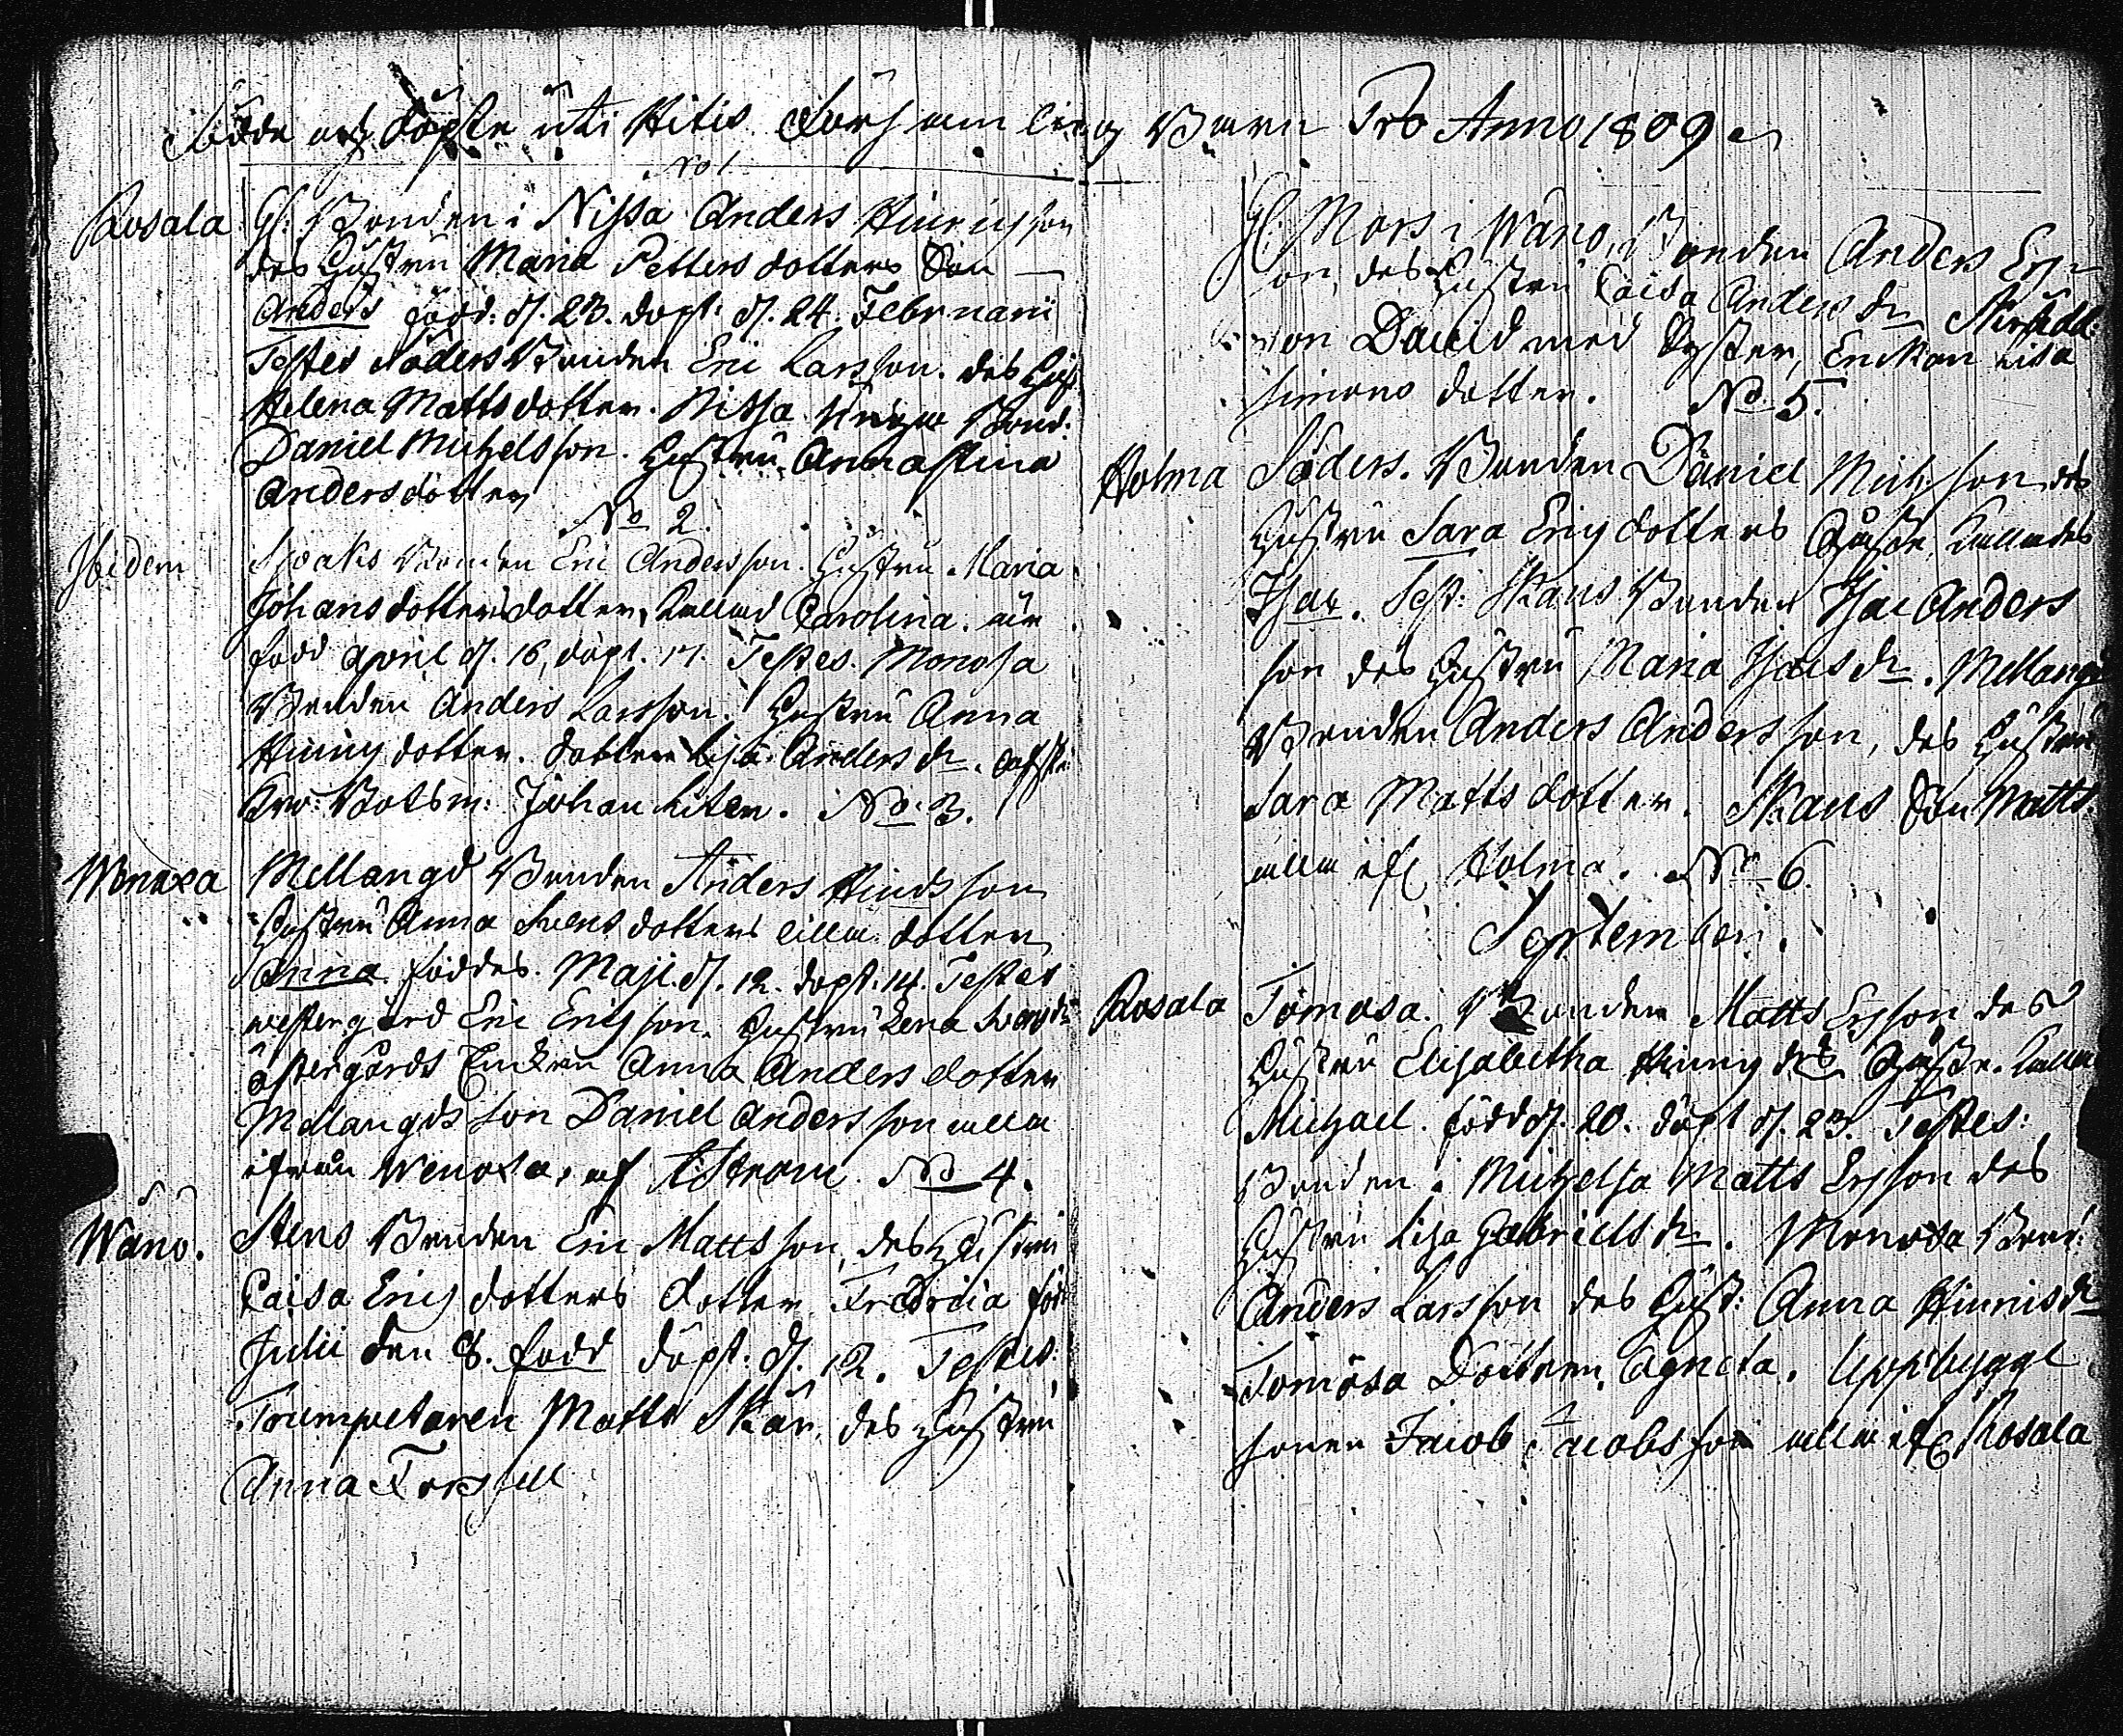 Födde och döpte uti Hitis Församling Barn Pro Anno 1809
No 1
Rosala Gl: Bonden i Nissa Anders Hinrichsson
des Hustru Maria Petters dotters Son
Anders född: d. 23. döpt: d. 24. Februarii
Testes Söders Bonden Eric Larsson. des Hust
Helena Mattsdotter. Nissa Bond:
Daniel Michelsson. Hustru Anna Stina
Andersdotter
No 2.
Ibidem Bonden Eric Andersson. Hustru Maria
Johansdotters dotter, Kallad Carolina. är
född April d. 16, döpt. 17. Testes. Monosa
Bonden Anders Larsson. Hustru Anna
Hinrichdotter. dotter Lisa Anders dr.
Botsm: Johan Liten. No. 3.
Wenoxa Mellangd Bonden Anders Hindsson
Hustru Anna Svensdotters lilla dotter
Anna föddes. Maji. d. 12. döpt. 14. Testes
westergård Eric Ericsson. Hustru Lena Svens dr
östergårds Enkan Anna Anders dotter
Mellangds son Daniel Andersson alla
ifrån Wenoxa, af No 4.
Wänö. Stens Bonden Eric Mattsson, des Hustru
Caisa Erics dotters dotter Fredrica föd
Julii den 8. född döpt. d. 12. Testes.
Trumpetaren Matts Skär, des Hustru
Anna Forssell
Gl. Mors i Wänö, Bonden Anders Ers-
son, des Hustru Caisa Anders dr
David med Syster, Enkan Lisa
Simons dotter. No 5.
Holma Söders. Bonden Daniel Michsson des
Hustru Sara Erics dotters Gosse, kallades
Isac. Test: Skans Bonden Isac Anders
son des Hustru Maria Isacs dr. Mellangds
Bonden Anders Andersson, des Hustru
Sara Mattsdotter. Skans Son Matts.
alla ifr Holma. No 6.
September.
Rosala Tomasa. Bonden Matts Ersson des
Hustru Elisabetha Hinrichs drs Gosse. kallas
Michael. född d. 20. döpt d. 23. Testes:
Bonden i Michelsa Matts Ersson des
Hustru Lisa Gabriels dr. Monosa Bond:
Anders Larsson des Hust: Anna Hinrics dr
Tomasa Dottren Agneta. Uppbygge
sonen Jacob Jacobsson alla ifr Rosala